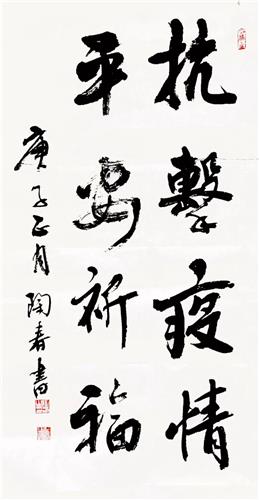 抗擊疫情
平安祈福
庚子正月陶春書